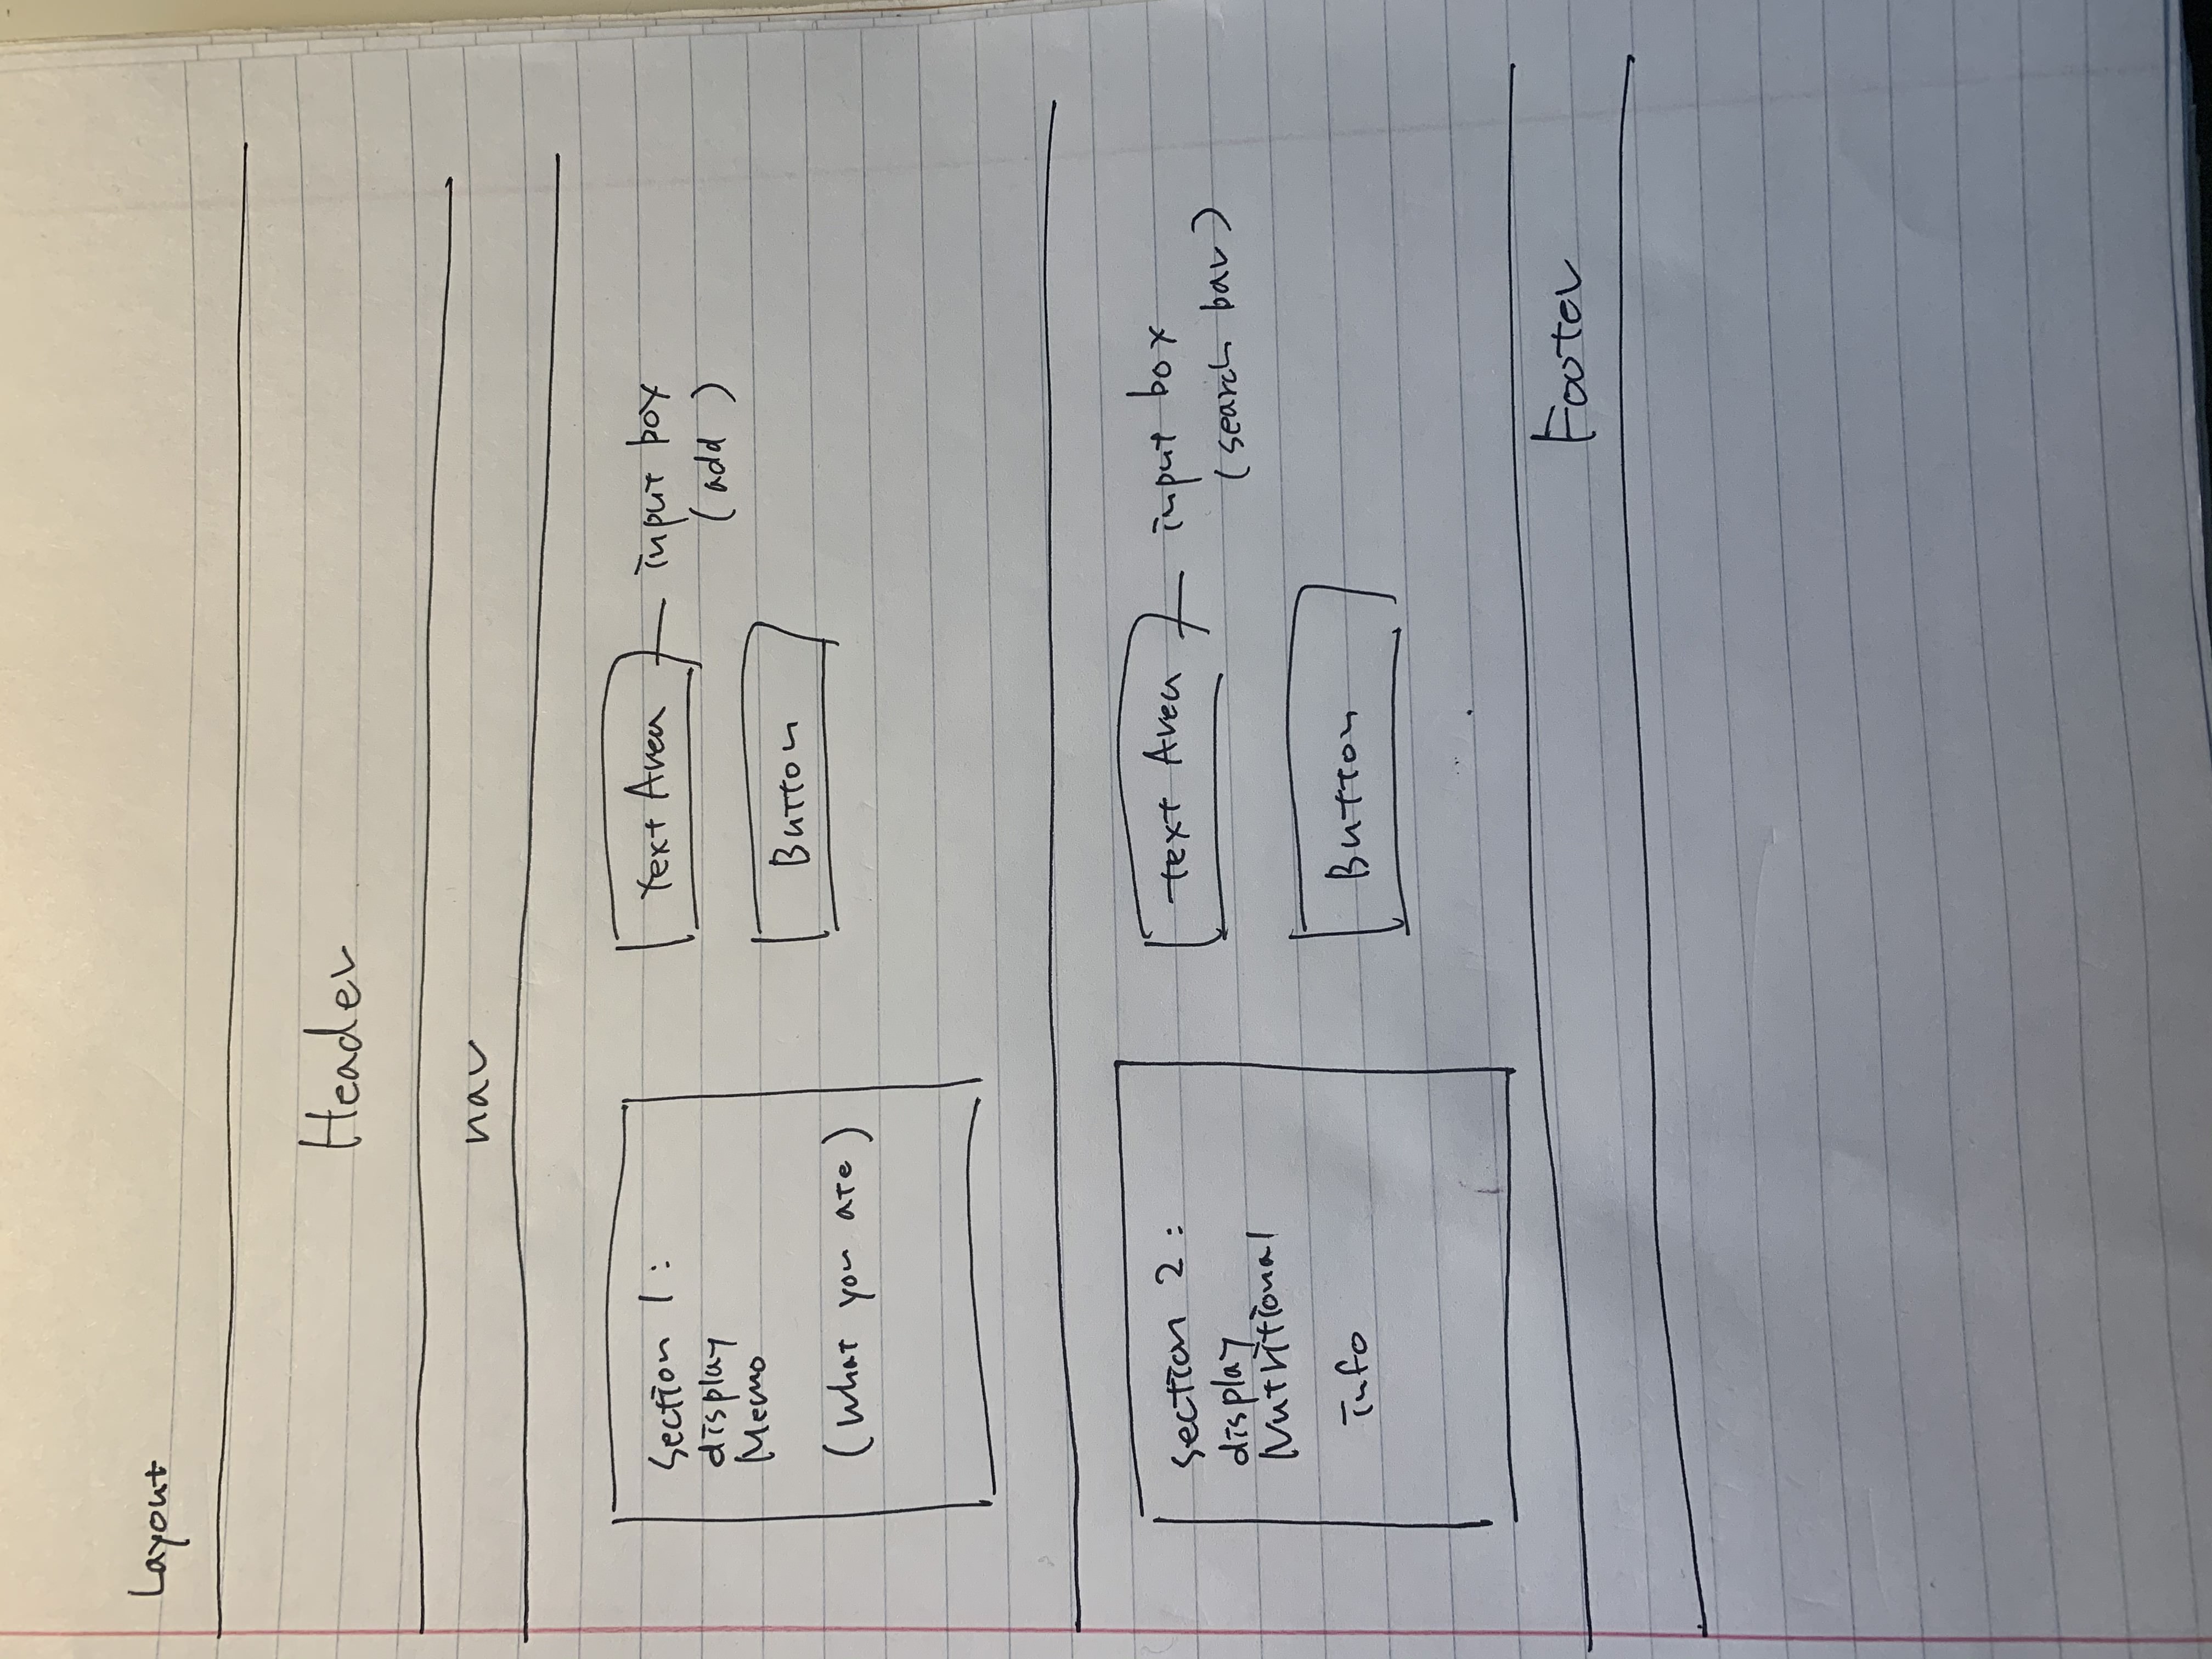 Layout
Header
nav
Section 1:
display
Memo
(What you ate)
Text Area
input box
(add)
Button
Section 2:
display
Nutritional
info
text Area
input box
(search bar)
Button
Footer